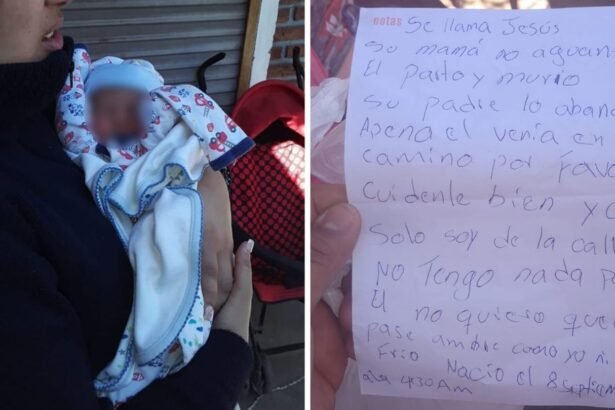 notas
Se llama Jesús
Su mamá no aguan
El parto y murio
Su padre lo aban
Apena el venía en
camino por favo
Cuidenle bien y
Solo soy de la call
NO Tengo nada p
El no quiero que
pase ambre como yo ni
Frio Nacio el 8 septiem
a la 4:30 Am